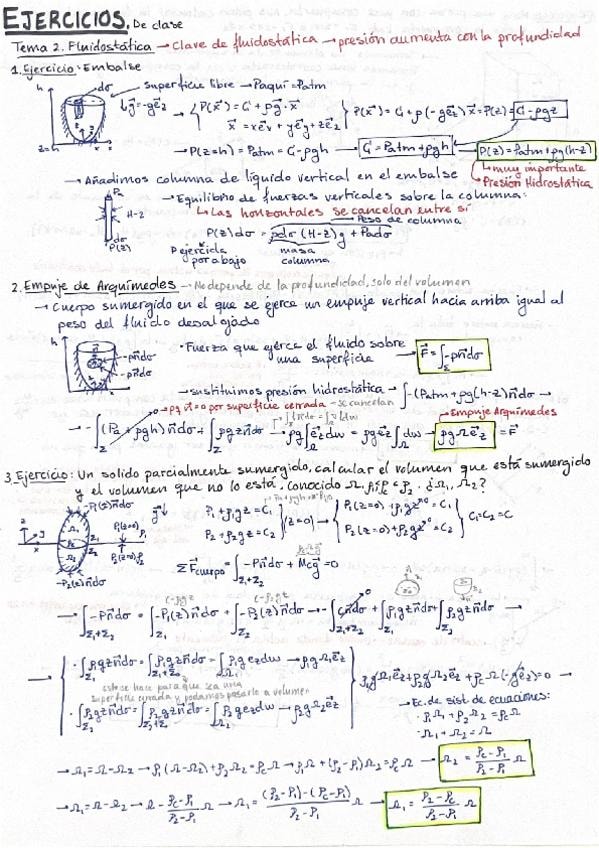 EJERCICIOS. De clase
Tema 2. Fluidostática → Clave de fluidostática → presión aumenta con la profundidad
1. Ejercicio: Embalse
Superficie libre → Paquí = Patm
P(x⃗) = C₁ + ρg⃗·x⃗
x⃗ = xe⃗x + ye⃗y + ze⃗z
P(x⃗) = C₁ + ρ(-ge⃗z)x⃗ = P(z) = C₁ - ρgz
→ P(z=h) = Patm = C₁ - ρgh → C₁ = Patm + ρgh → P(z) = Patm + ρg(h-z)
muy importante
Presión Hidrostática
→ Añadimos columna de líquido vertical en el embalse
→ Equilibrio de fuerzas verticales sobre la columna:
→ Las horizontales se cancelan entre sí
Peso de columna
P(z)dσ = ρdσ(H-z)g + Padσ
P ejercida por abajo
masa columna
H-z
P(z)
2. Empuje de Arquímedes → No depende de la profundidad, solo del volumen
→ Cuerpo sumergido en el que se ejerce un empuje vertical hacia arriba igual al
peso del fluido desalojado
• Fuerza que ejerce el fluido sobre
una superficie → F⃗ = ∫ -pn⃗dσ
→ sustituimos presión hidrostática → ∫ -(Patm + ρg(h-z))n⃗dσ →
por superficie cerrada → se cancelan
Empuje Arquímedes
→ -∫(Pa + ρgh)n⃗dσ + ∫ρgzn⃗dσ → ρg∫e⃗zdω = ρge⃗z∫dω → ρgΩe⃗z = F⃗
3. Ejercicio: Un solido parcialmente sumergido, calcular el volumen que está sumergido
y el volumen que no lo está. Conocido Ω, ρ₁, ρc, ρ₂. ¿Ω₁, Ω₂?
-P₁(z)n⃗dσ
-P₂(z)n⃗dσ
P₁ + ρ₁gz = C₁
P₂ + ρ₂gz = C₂
(z=0) →
P₁(z=0) + ρ₁gz = C₁
P₂(z=0) + ρ₂gz = C₂
C₁ = C₂ = C
ΣF⃗cuerpo = ∫ -Pn⃗dσ + Mcg⃗ = 0
→ ∫ -Pn⃗dσ = ∫ -P₁(z)n⃗dσ + ∫ -P₂(z)n⃗dσ → -∫Cn⃗dσ + ∫ρ₁gzn⃗dσ + ∫ρ₂gzn⃗dσ →
• ∫ρ₁gzn⃗dσ = ∫ρ₁gzn⃗dσ = ∫ρ₁ge⃗zdω → ρ₁gΩ₁e⃗z
esto se hace para que sea una
superficie cerrada y podamos pasarlo a volumen
• ∫ρ₂gzn⃗dσ = ∫ρ₂gzn⃗dσ = ∫ρ₂ge⃗zdω → ρ₂gΩ₂e⃗z
ρ₁gΩ₁e⃗z + ρ₂gΩ₂e⃗z + ρcΩ(-ge⃗z) = 0 →
→ Ec. de sist. de ecuaciones:
• ρ₁Ω₁ + ρ₂Ω₂ = ρcΩ
• Ω₁ + Ω₂ = Ω
→ Ω₁ = Ω - Ω₂ → ρ₁(Ω - Ω₂) + ρ₂Ω₂ = ρcΩ → ρ₁Ω + (ρ₂ - ρ₁)Ω₂ = ρcΩ → Ω₂ = (ρc - ρ₁)/(ρ₂ - ρ₁) Ω
→ Ω₁ = Ω - Ω₂ → Ω - (ρc - ρ₁)/(ρ₂ - ρ₁) Ω → Ω₁ = ((ρ₂ - ρ₁) - (ρc - ρ₁))/(ρ₂ - ρ₁) Ω → Ω₁ = (ρ₂ - ρc)/(ρ₂ - ρ₁) Ω